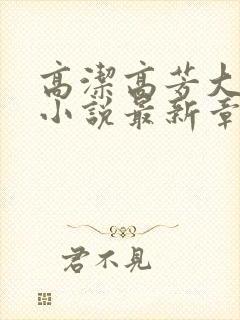 高潔高芳大
小說最新章
君不見